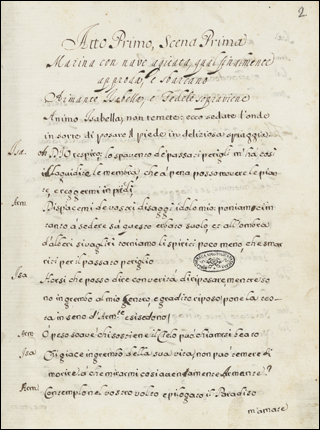 2
Atto Primo, Scena Prima
Marina con nave agitata, qual finalmente
approda, e sbarcano
Armante Isabella, e Fedele sopraviene
Animo Isabella, non temete; ecco sedate l'onde
in sorte di posare il piede in deliziosa spiaggia
Isa. oh Dio respiro; lo spavento de passati perigli m'ha così
la memoria, che à pena posso movere le pian
te, e reggermi in piedi
Arm. Dispiacemi de vostri disaggi idolo mio: poniamci in
tanto a sedere sù questo erbaso suolo, et all'ombra
d'alberi si torniamo li spiriti poco meno, che smar
riti per il passato periglio
Isa Horsi che posso dire con verità di riposare mentre so
no in grembo al mio e gradito riposo; pone la te
sta in seno d'Arm.te e siiedono
Arm O peso soave chi sostiene il Cielo può chiamarsi beato
Isa Chi giace in grembo della sua vita, non può temere di
morire
Arm. Contemplo nel vostro volto epilogato il Paradiso
m'amate